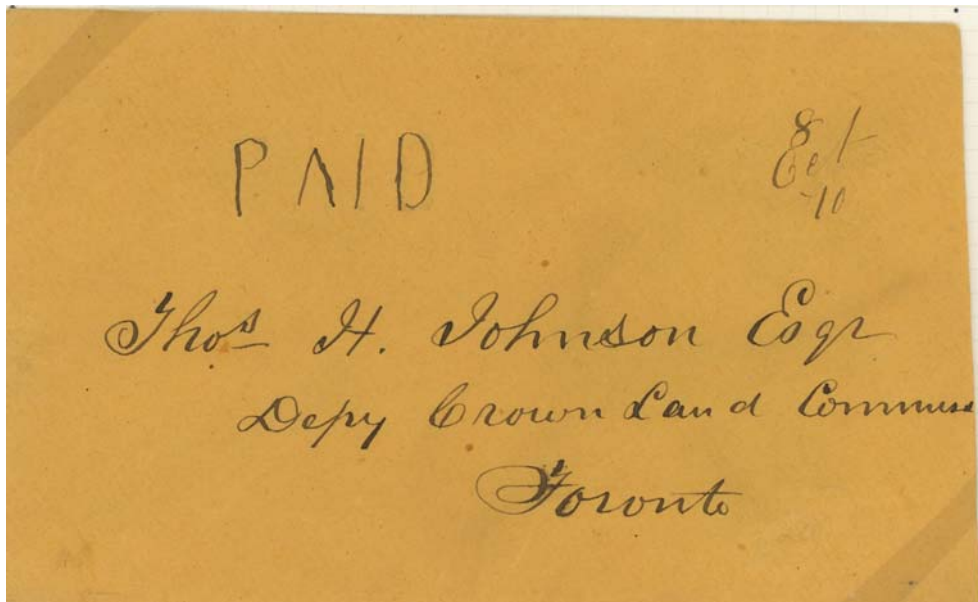 PAID
8
-10
Thos H. Johnson Esqr
Depy Crown Land Commiss
Toronto